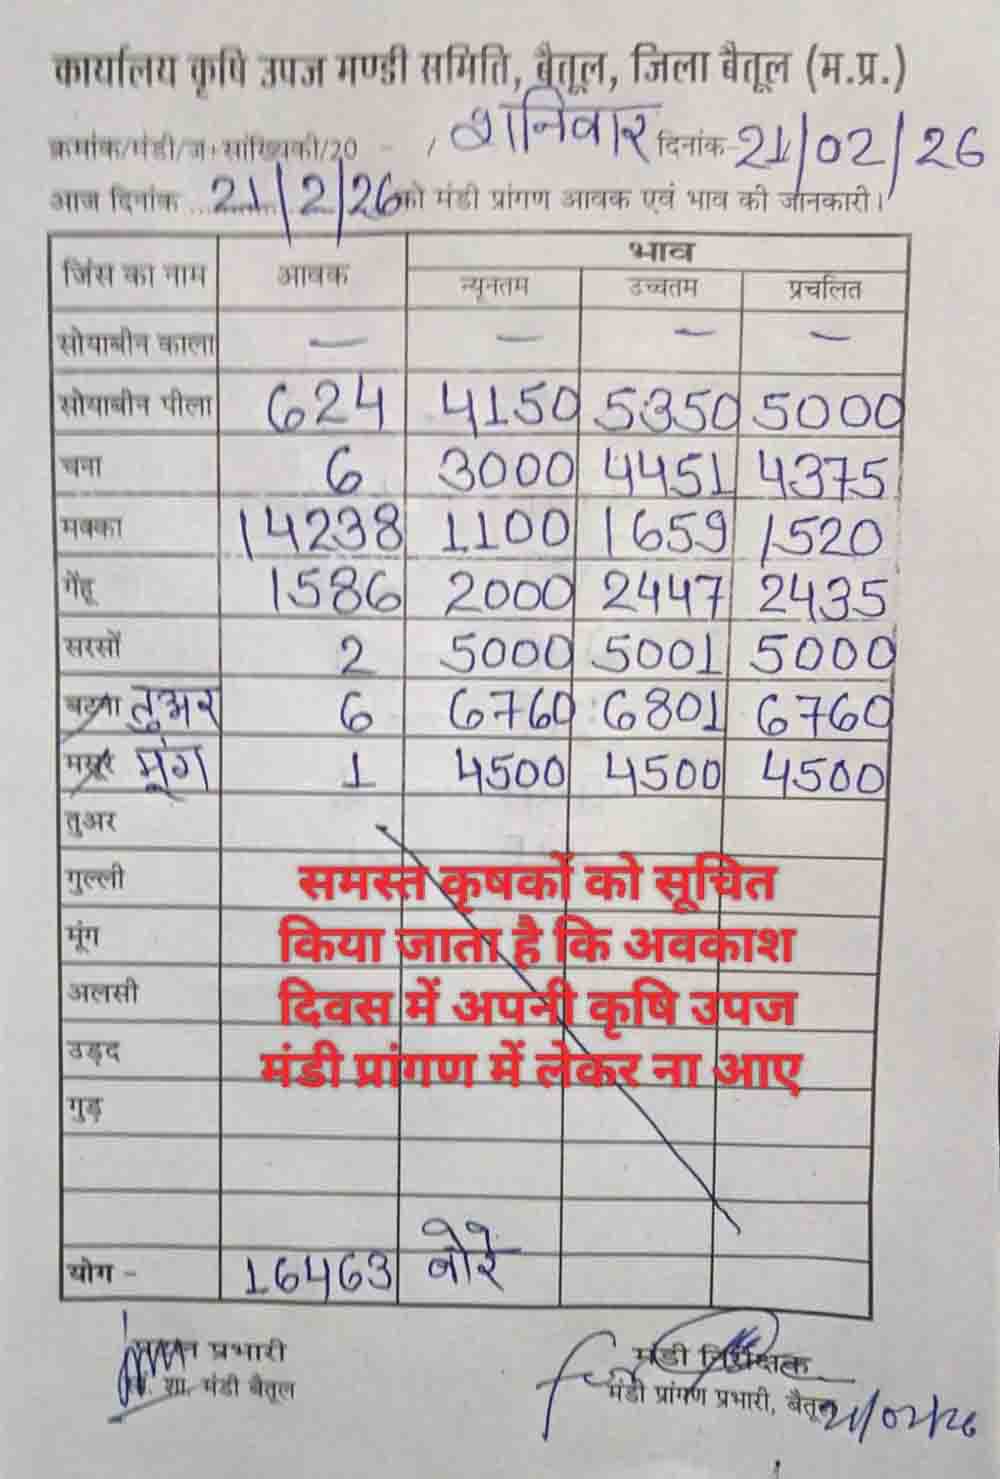 कार्यालय कृषि उपज मण्डी समिति, बैतूल, जिला बैतूल (म.प्र.)
क्रमांक/मंडी/ज+सांख्यिकी/20 - / शनिवार दिनांक-21/02/26
आज दिनांक 21/2/26 को मंडी प्रांगण आवक एवं भाव की जानकारी।
जिंस का नाम आवक भाव
न्यूनतम उच्चतम प्रचलित
सोयाबीन काला — — — —
सोयाबीन पीला 624 4150 5350 5000
चना 6 3000 4451 4375
मक्का 14238 1100 1659 1520
गेंहू 1586 2000 2447 2435
सरसों 2 5000 5001 5000
बटना तुअर 6 6760 6801 6760
मसूर मूंग 1 4500 4500 4500
तुअर
गुल्ली
मूंग
अलसी
उड़द
गुड़
समस्त कृषकों को सूचित
किया जाता है कि अवकाश
दिवस में अपनी कृषि उपज
मंडी प्रांगण में लेकर ना आए
योग - 16463 बोरे
प्रभारी
शा. मंडी बैतूल
मंडी निरीक्षक
मंडी प्रांगण प्रभारी, बैतूल
21/02/26